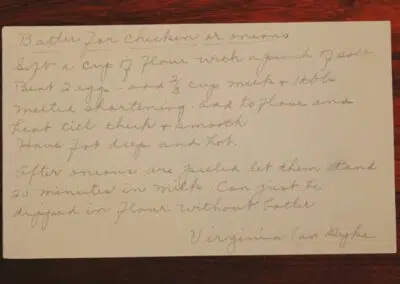 Batter for chicken or onions
Sift a cup of flour with a pinch of salt
Beat 2 egg - add 2/3 cup milk & 1 tbls
melted shortening. add to flour and
beat till thick & smooth
Have fat deep and hot.
After onions are peeled let them stand
20 minutes in milk. Can just be
dipped in flour without batter
Virginia Van Dyke